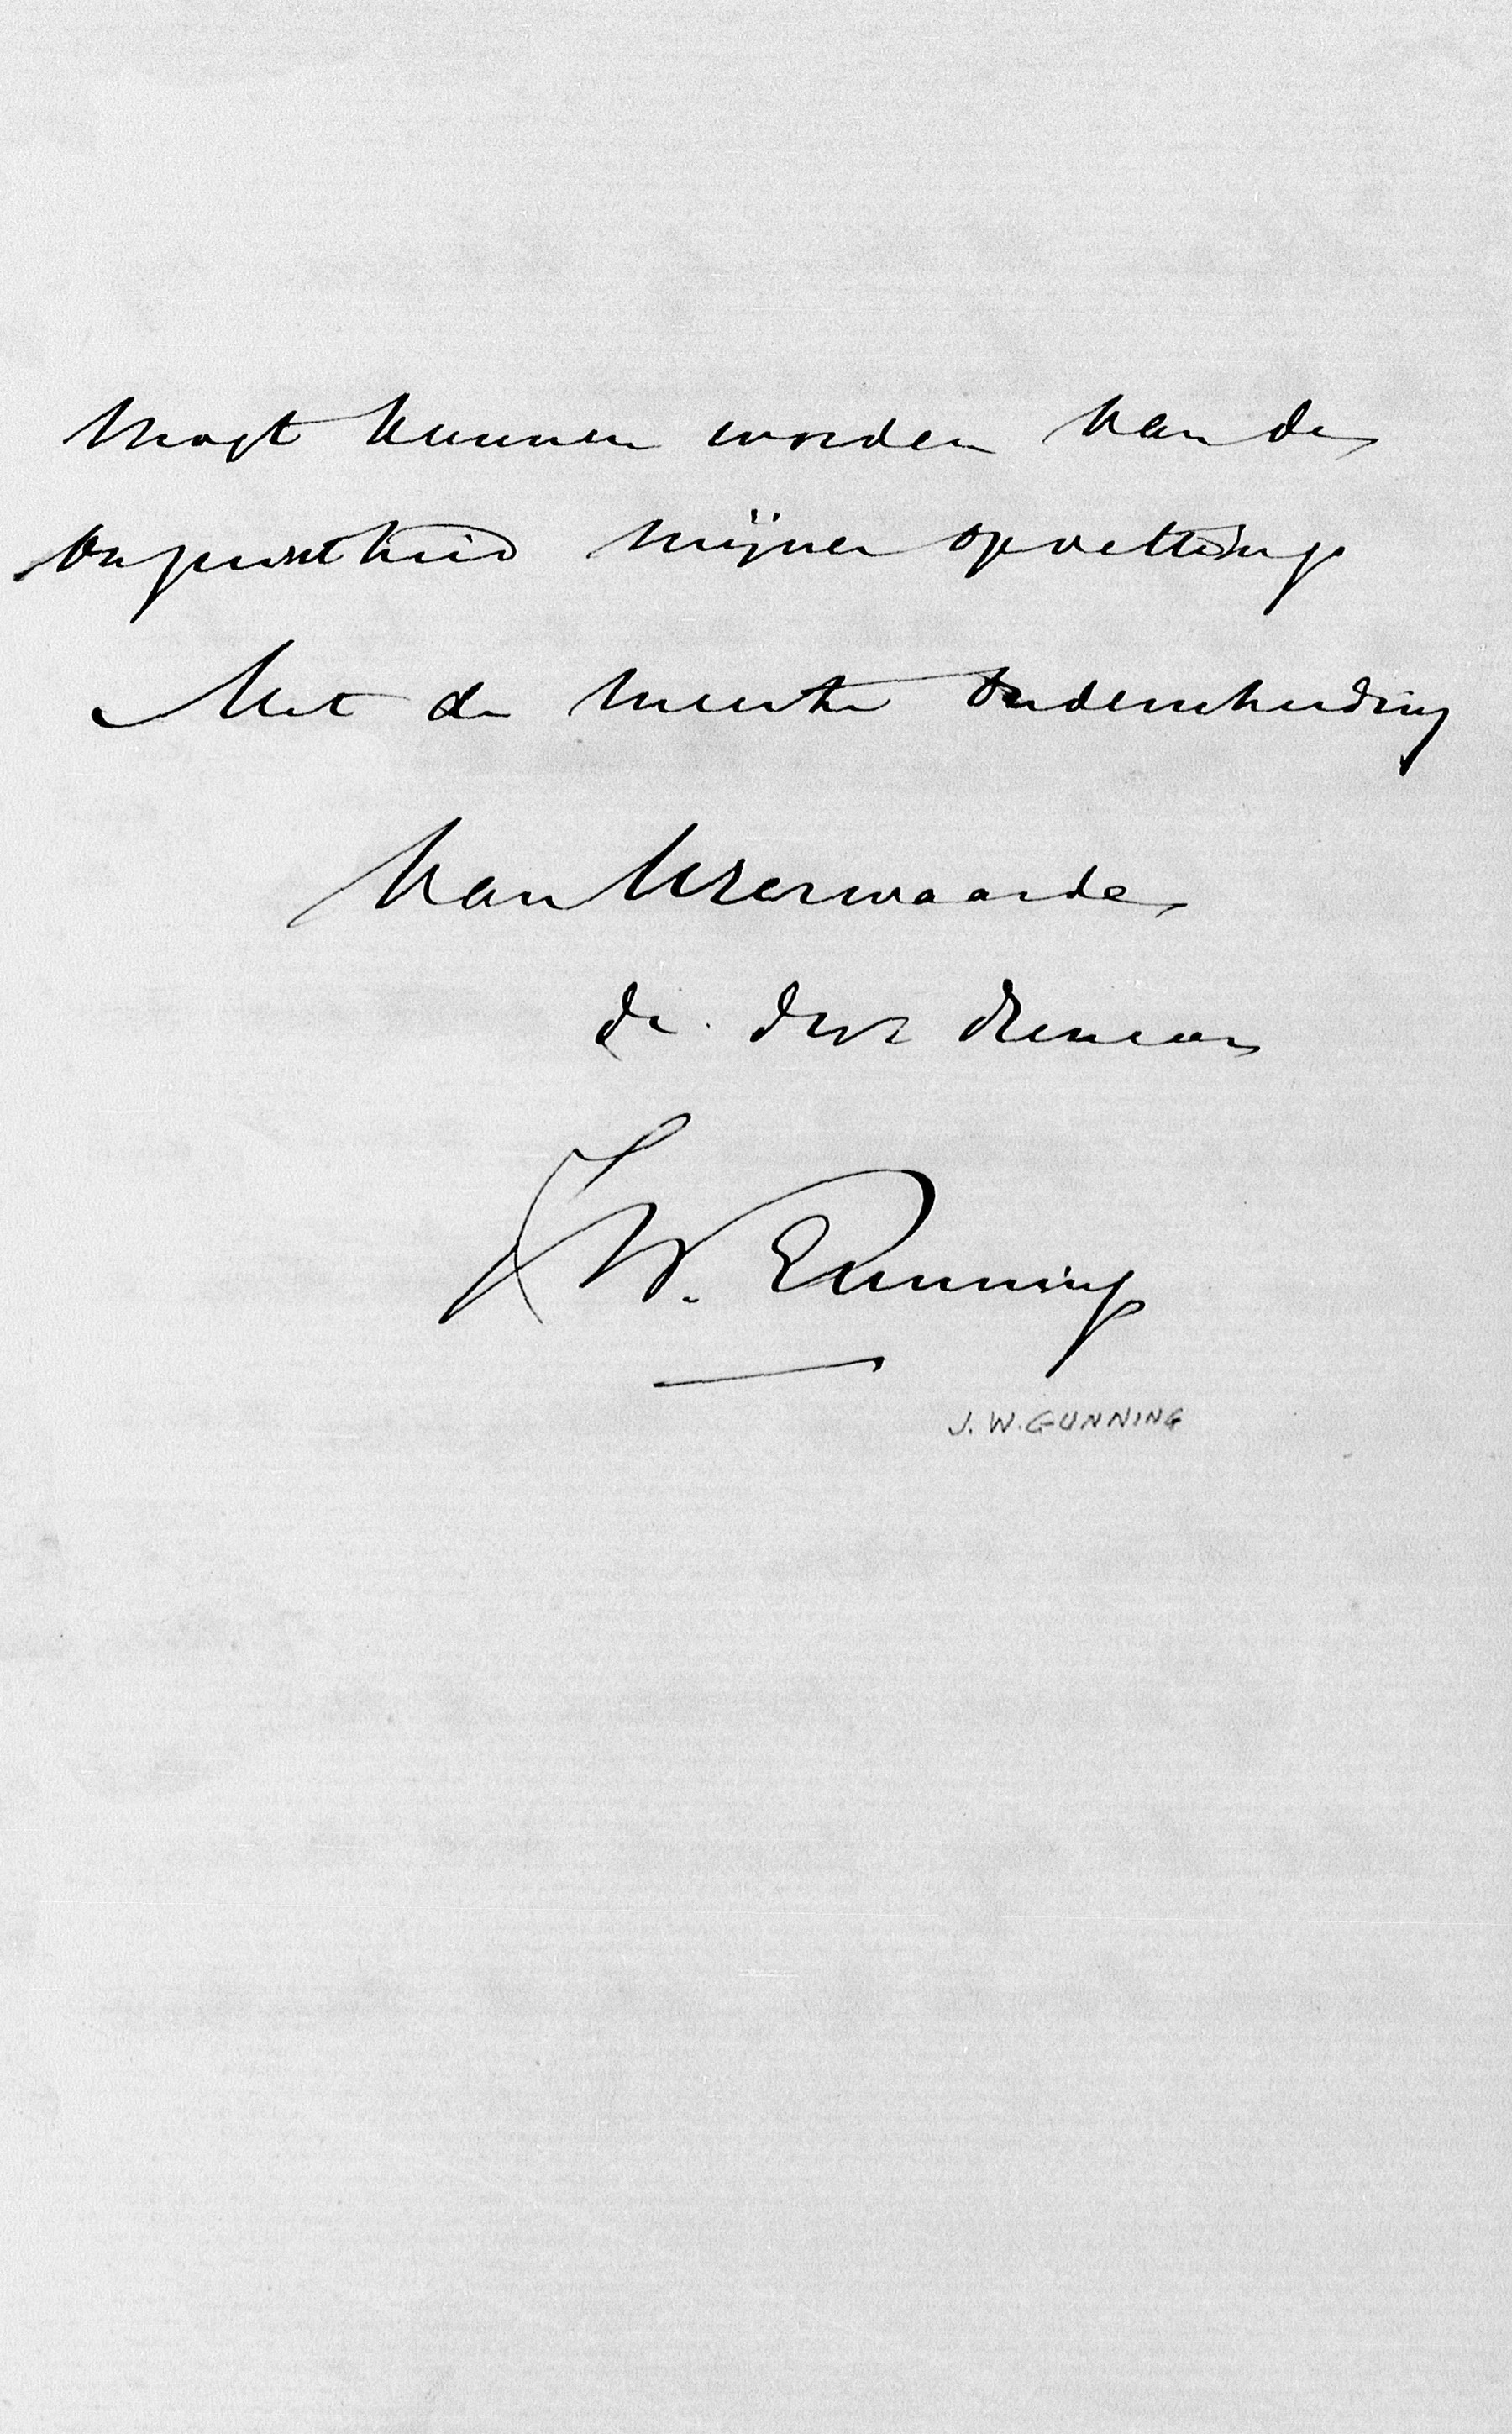 mogt kunnen worden van de
ongerustheid mijner opvatting
Met de meeste onderscheiding
Van UEerwaarde
de dw dienaar
J W. Gunning
J. W. GUNNING